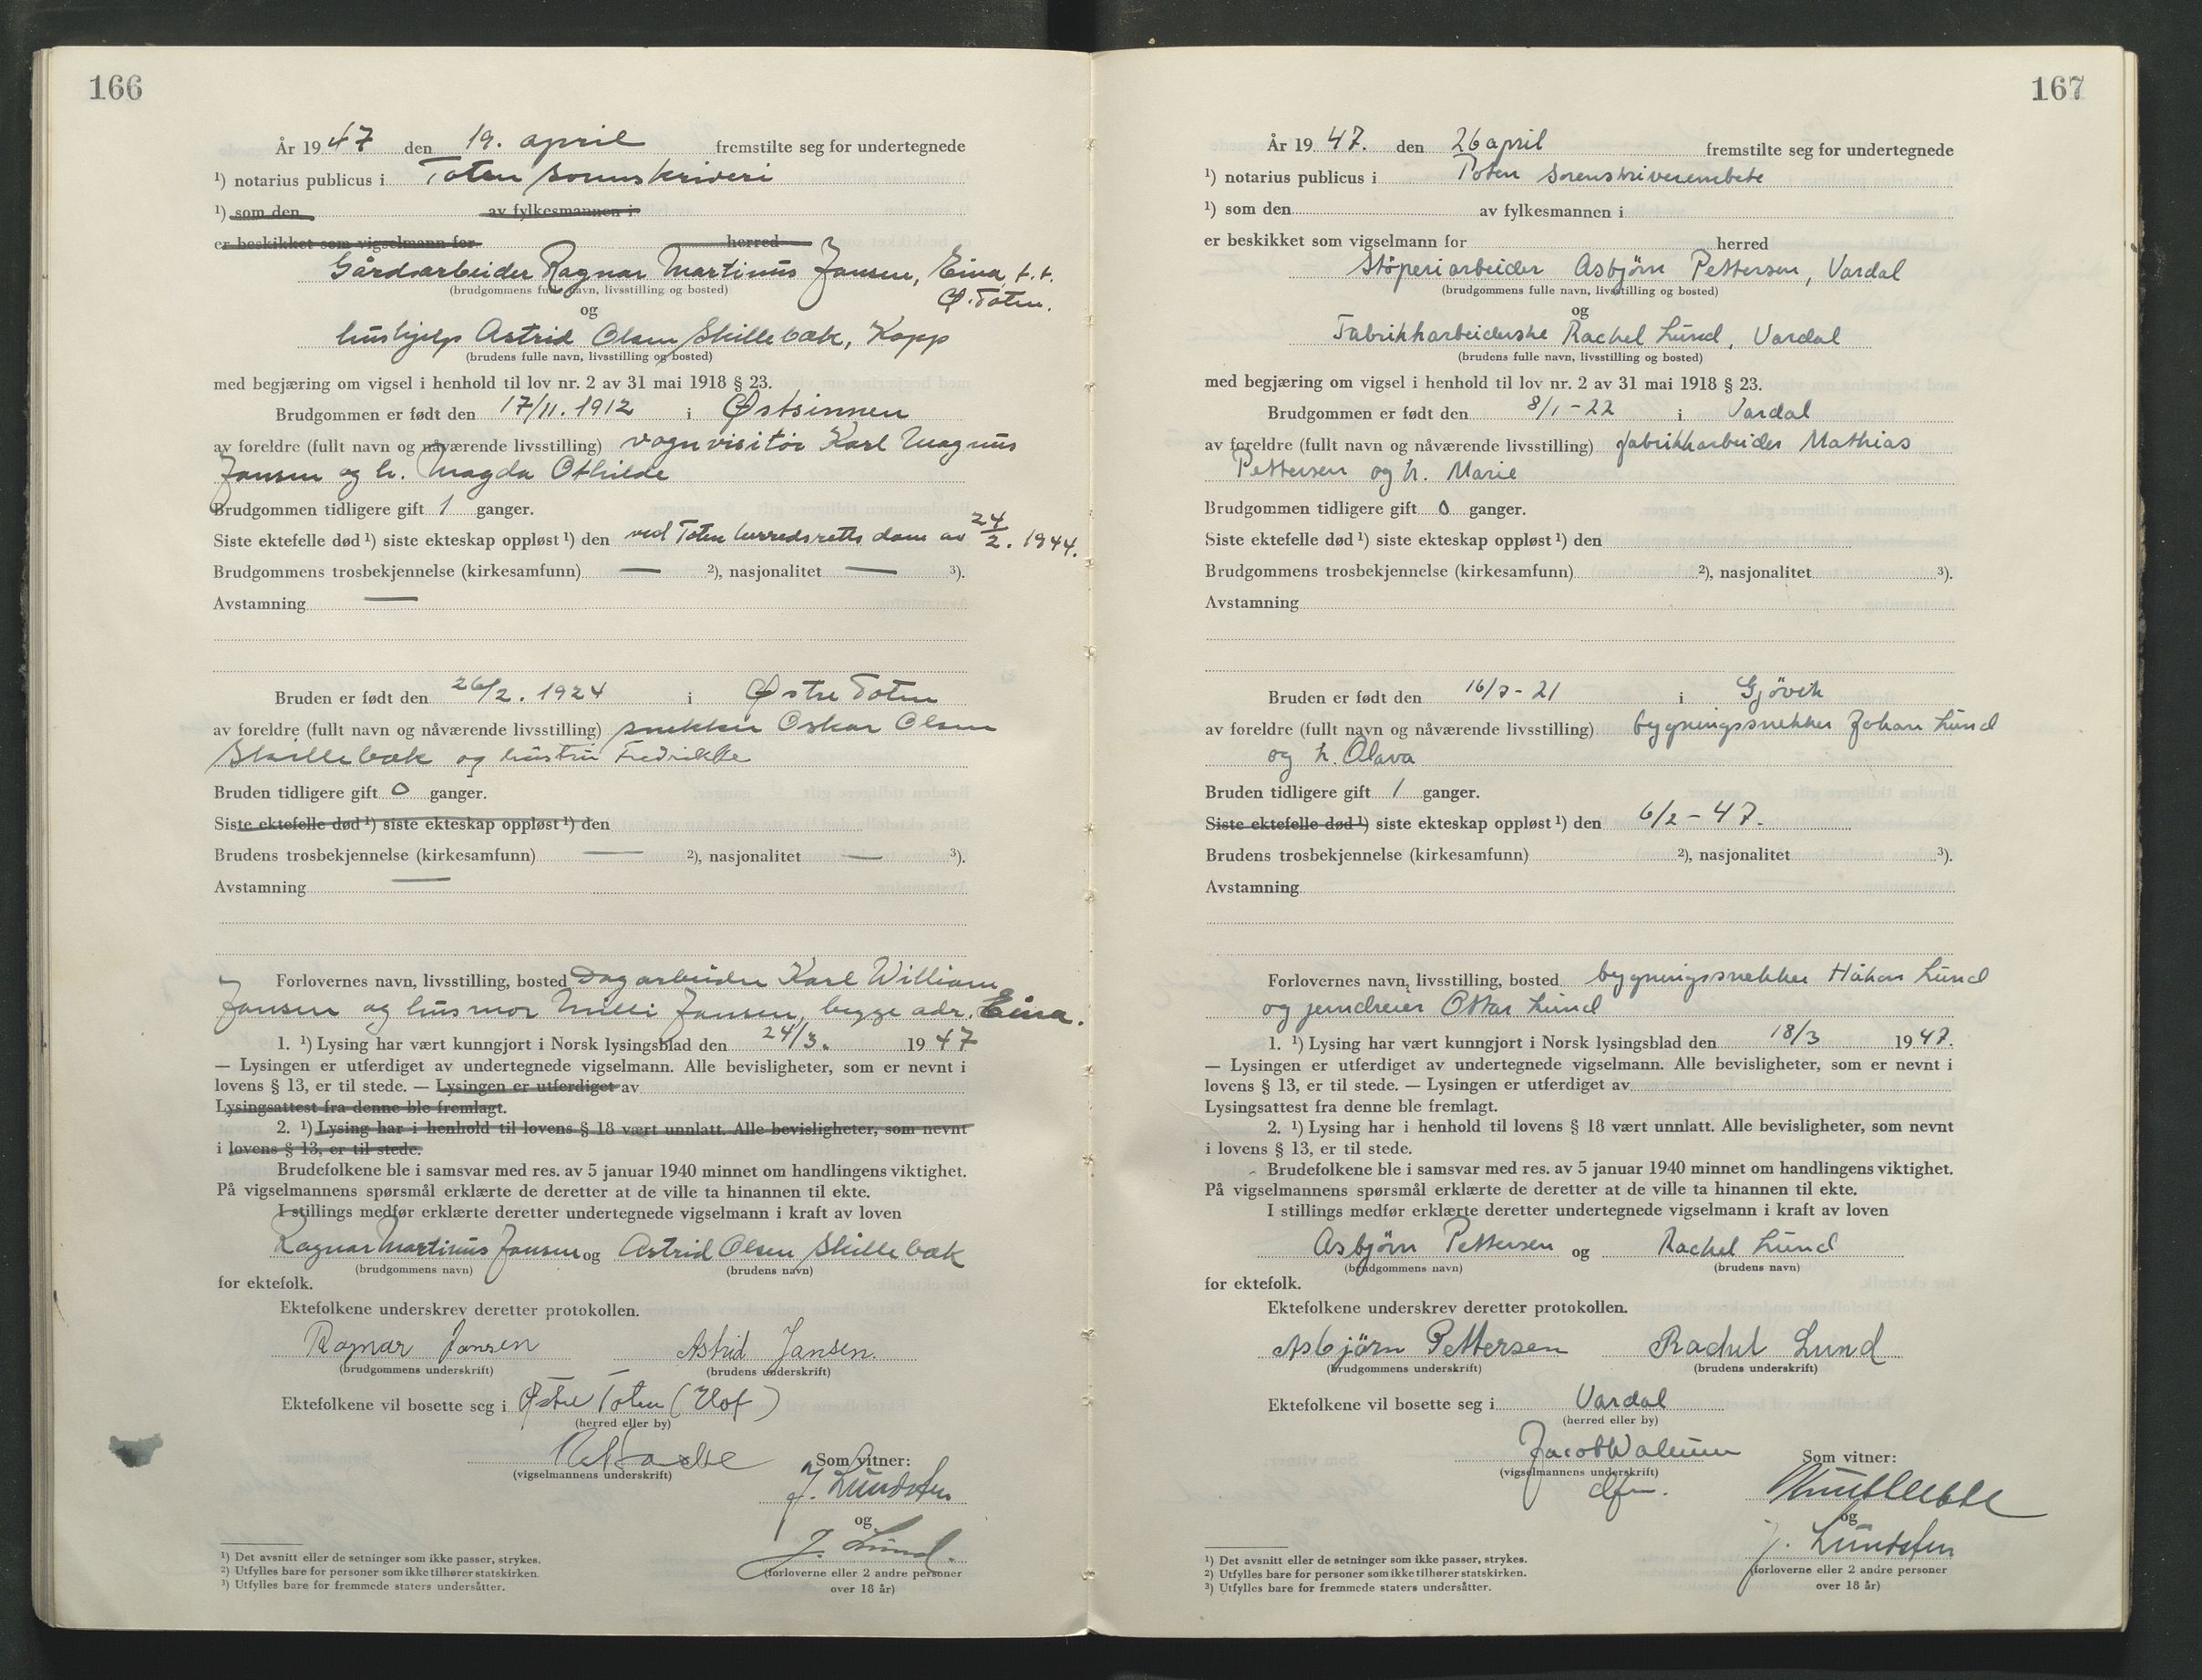 166
År 1947 den 19. april fremstilte seg for undertegnede
¹) notarius publicus i Toten sorenskriveri
¹) som den av fylkesmannen i
er beskikket som vigselmann for herred
Gårdsarbeider Ragnar Martinius Jansen, Eina, f.t.
(brudgommens fulle navn, livsstilling og bosted) Ø. Toten.
og
hushjelp Astrid Olsen Skillebæk, Kapp
(brudens fulle navn, livsstilling og bosted)
med begjæring om vigsel i henhold til lov nr. 2 av 31 mai 1918 § 23.
Brudgommen er født den 17/11. 1912 i Østsinnen
av foreldre (fullt navn og nåværende livsstilling) vognvisitør Karl Magnus
Jansen og h. Magda Othilde
Brudgommen tidligere gift 1 ganger.
Siste ektefelle død ¹) siste ekteskap oppløst ¹) den ved Toten herredsretts dom av 24/2. 1944.
Brudgommens trosbekjennelse (kirkesamfunn) — ²), nasjonalitet — ³).
Avstamning —
Bruden er født den 26/2. 1924 i Østre Toten
av foreldre (fullt navn og nåværende livsstilling) snekker Oskar Olsen
Skillebæk og hustru Fredrikke
Bruden tidligere gift 0 ganger.
Siste ektefelle død ¹) siste ekteskap oppløst ¹) den
Brudens trosbekjennelse (kirkesamfunn) — ²), nasjonalitet — ³).
Avstamning —
Forlovernes navn, livsstilling, bosted Dagarbeider Karl William
Jansen og husmor Milli Jansen, begge adr. Eina.
1. ¹) Lysing har vært kunngjort i Norsk lysingsblad den 24/3. 1947
— Lysingen er utferdiget av undertegnede vigselmann. Alle bevisligheter, som er nevnt i
lovens § 13, er til stede. — Lysingen er utferdiget av
Lysingsattest fra denne ble fremlagt.
2. ¹) Lysing har i henhold til lovens § 18 vært unnlatt. Alle bevisligheter, som nevnt
i lovens § 13, er til stede.
Brudefolkene ble i samsvar med res. av 5 januar 1940 minnet om handlingens viktighet.
På vigselmannens spørsmål erklærte de deretter at de ville ta hinannen til ekte.
I stillings medfør erklærte deretter undertegnede vigselmann i kraft av loven
Ragnar Martinius Jansen og Astrid Olsen Skillebæk
(brudgommens navn) (brudens navn)
for ektefolk.
Ektefolkene underskrev deretter protokollen.
Ragnar Jansen Astrid Jansen.
(brudgommens underskrift) (brudens underskrift)
Ektefolkene vil bosette seg i Østre Toten (Hof)
(herred eller by)
Som vitner:
(vigselmannens underskrift)
J. Lundsten
og
J. Lund.
(forloverne eller 2 andre personer
over 18 år)
¹) Det avsnitt eller de setninger som ikke passer, strykes.
²) Utfylles bare for personer som ikke tilhører statskirken.
³) Utfylles bare for fremmede staters undersåtter.
167
År 1947. den 26 april fremstilte seg for undertegnede
¹) notarius publicus i Toten sorenskriverembete
¹) som den av fylkesmannen i
er beskikket som vigselmann for herred
Støperiarbeider Asbjørn Pettersen, Vardal
(brudgommens fulle navn, livsstilling og bosted)
og
Fabrikkarbeiderske Rachel Lund, Vardal
(brudens fulle navn, livsstilling og bosted)
med begjæring om vigsel i henhold til lov nr. 2 av 31 mai 1918 § 23.
Brudgommen er født den 8/1-22 i Vardal
av foreldre (fullt navn og nåværende livsstilling) fabrikkarbeider Mathias
Pettersen og h. Marie
Brudgommen tidligere gift 0 ganger.
Siste ektefelle død ¹) siste ekteskap oppløst ¹) den
Brudgommens trosbekjennelse (kirkesamfunn) ²), nasjonalitet ³).
Avstamning
Bruden er født den i Gjøvik
av foreldre (fullt navn og nåværende livsstilling) bygningssnekker Johan Lund
og h. Olava
Bruden tidligere gift 1 ganger.
Siste ektefelle død ¹) siste ekteskap oppløst ¹) den 6/2-47.
Brudens trosbekjennelse (kirkesamfunn) ²), nasjonalitet ³).
Avstamning
Forlovernes navn, livsstilling, bosted bygningssnekker Håkon Lund
og jerndreier Ottar Lund
1. ¹) Lysing har vært kunngjort i Norsk lysingsblad den 18/3 1947.
— Lysingen er utferdiget av undertegnede vigselmann. Alle bevisligheter, som er nevnt i
lovens § 13, er til stede. — Lysingen er utferdiget av
Lysingsattest fra denne ble fremlagt.
2. ¹) Lysing har i henhold til lovens § 18 vært unnlatt. Alle bevisligheter, som nevnt
i lovens § 13, er til stede.
Brudefolkene ble i samsvar med res. av 5 januar 1940 minnet om handlingens viktighet.
På vigselmannens spørsmål erklærte de deretter at de ville ta hinannen til ekte.
I stillings medfør erklærte deretter undertegnede vigselmann i kraft av loven
Asbjørn Pettersen og Rachel Lund
(brudgommens navn) (brudens navn)
for ektefolk.
Ektefolkene underskrev deretter protokollen.
Asbjörn Pettersen Rachel Lund
(brudgommens underskrift) (brudens underskrift)
Ektefolkene vil bosette seg i Vardal
(herred eller by)
Som vitner:
(vigselmannens underskrift)
og
J. Lundsten
(forloverne eller 2 andre personer
over 18 år)
¹) Det avsnitt eller de setninger som ikke passer, strykes.
²) Utfylles bare for personer som ikke tilhører statskirken.
³) Utfylles bare for fremmede staters undersåtter.